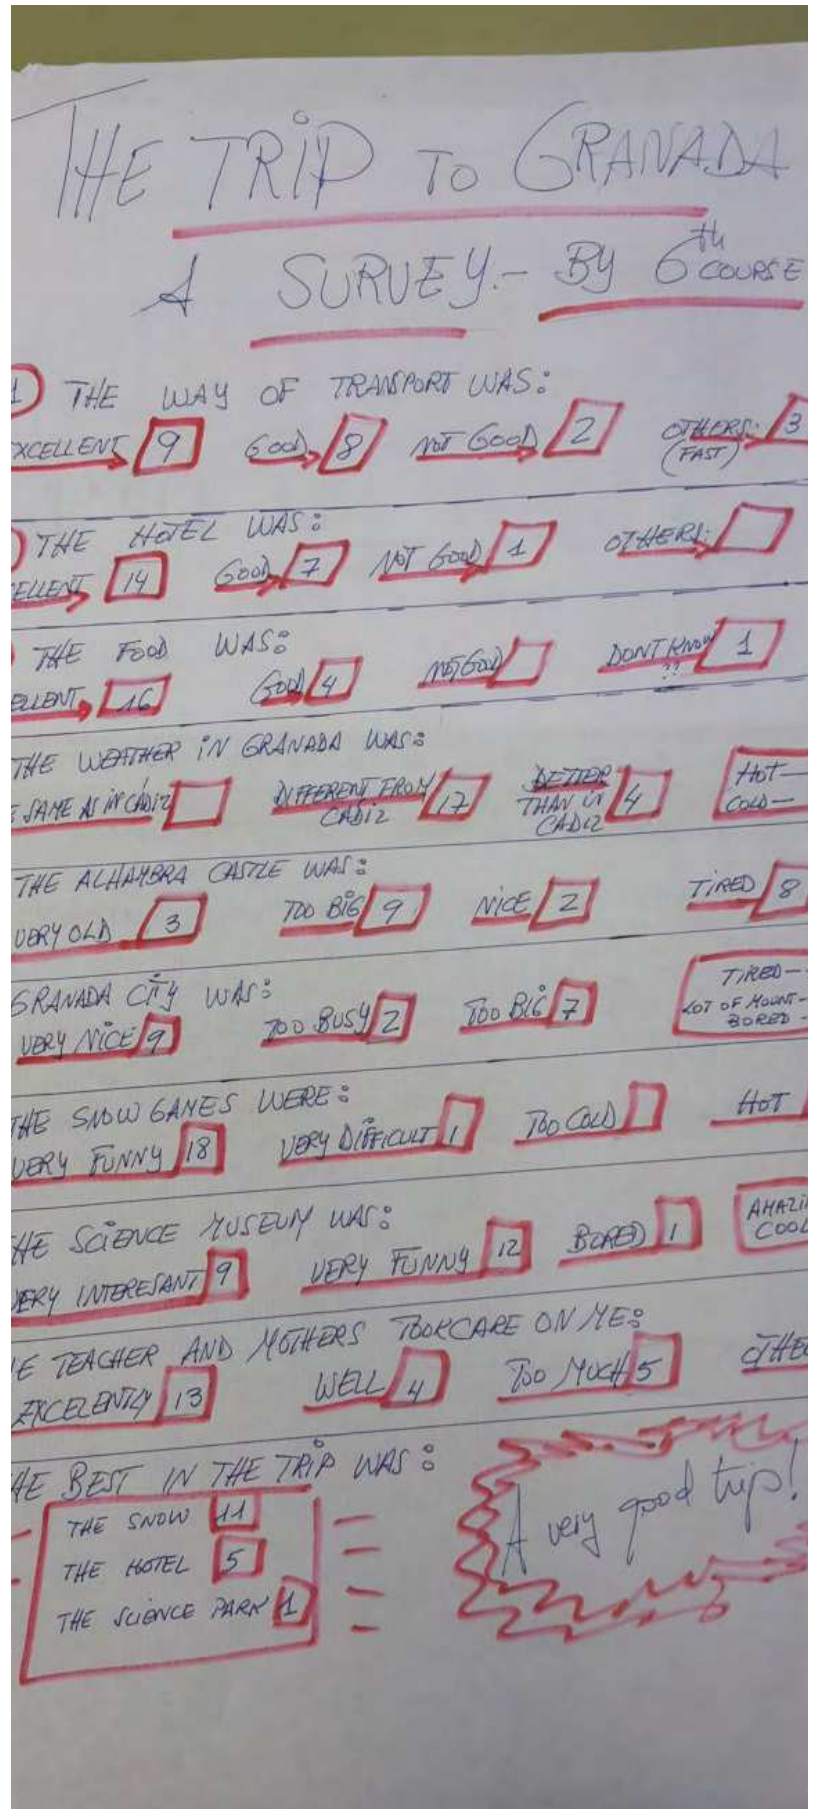 THE TRIP TO GRANADA
A SURVEY.- BY 6th COURSE
1 THE WAY OF TRANSPORT WAS:
XCELLENT 9 GOOD 8 NOT GOOD 2 OTHERS: 3
(FAST)
THE HOTEL WAS:
ELLENT 14 GOOD 7 NOT GOOD 1 OTHERS:
THE FOOD WAS:
ELLENT 16 GOOD 4 NOT GOOD DONT KNOW 1
??
THE WEATHER IN GRANADA WAS:
E SAME AS IN CÁDIZ DIFFERENT FROM CADIZ 17 BETTER THAN IN CADIZ 4 HOT—
COLD—
THE ALHAMBRA CASTLE WAS:
VERY OLD 3 TOO BIG 9 NICE 2 TIRED 8
GRANADA CITY WAS:
VERY NICE 9 TOO BUSY 2 TOO BIG 7 TIRED—
LOT OF MOUNT-
BORED -
THE SNOW GAMES WERE:
VERY FUNNY 18 VERY DIFFICULT 1 TOO COLD HOT
HE SCIENCE MUSEUM WAS:
VERY INTERESANT 9 VERY FUNNY 12 BORED 1 AMAZIN
COOL
E TEACHER AND MOTHERS TOOK CARE ON ME:
EXCELENTLY 13 WELL 4 TOO MUCH 5 OTHE
HE BEST IN THE TRIP WAS:
THE SNOW 11
THE HOTEL 5
THE SCIENCE PARK 1
A very good trip!